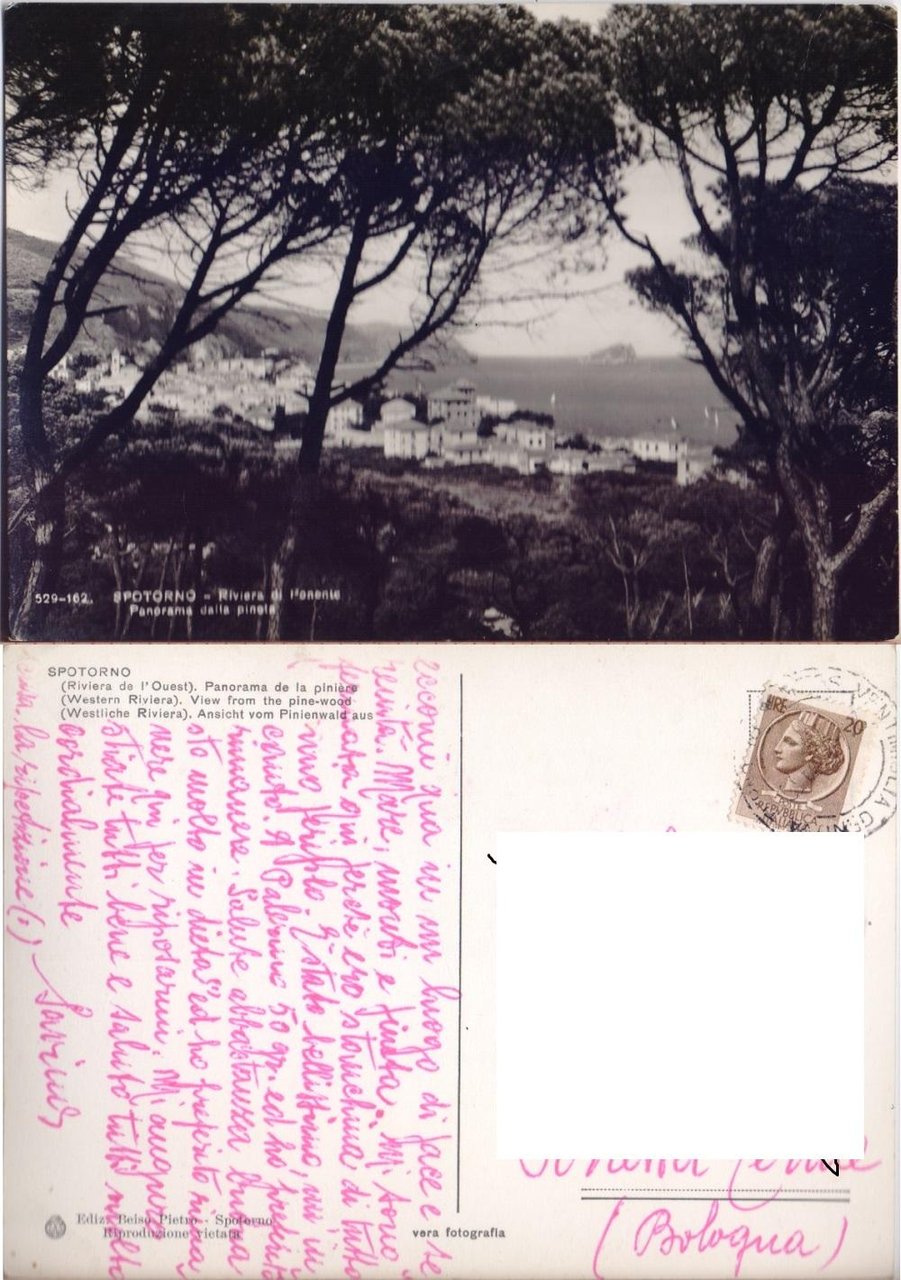 529-162. SPOTORNO - Riviera di Ponente
Panorama dalla pineta
SPOTORNO
(Riviera de l'Ouest). Panorama de la pinière
(Western Riviera). View from the pine-wood
(Westliche Riviera). Ansicht vom Pinienwald aus
LIRE 20
Eccomi qua in un luogo di pace e se
renità. Mare, monti e pineta. Mi sono
fermata qui perchè ero stanchina di tutto
È stato bellissimo, mi in
A Palermo 50 gr. ed ho preferito
rimanere. Salute abbastanza buona
sto molto in dieta ed ho preferito rima
nere qui per riposarmi. Mi auguro
stiate tutti bene e saluto tutti molto
cordialmente
la spedizione (:)
Ediz. Beiso Pietro - Spotorno
Riproduzione vietata
vera fotografia
(Bologna)